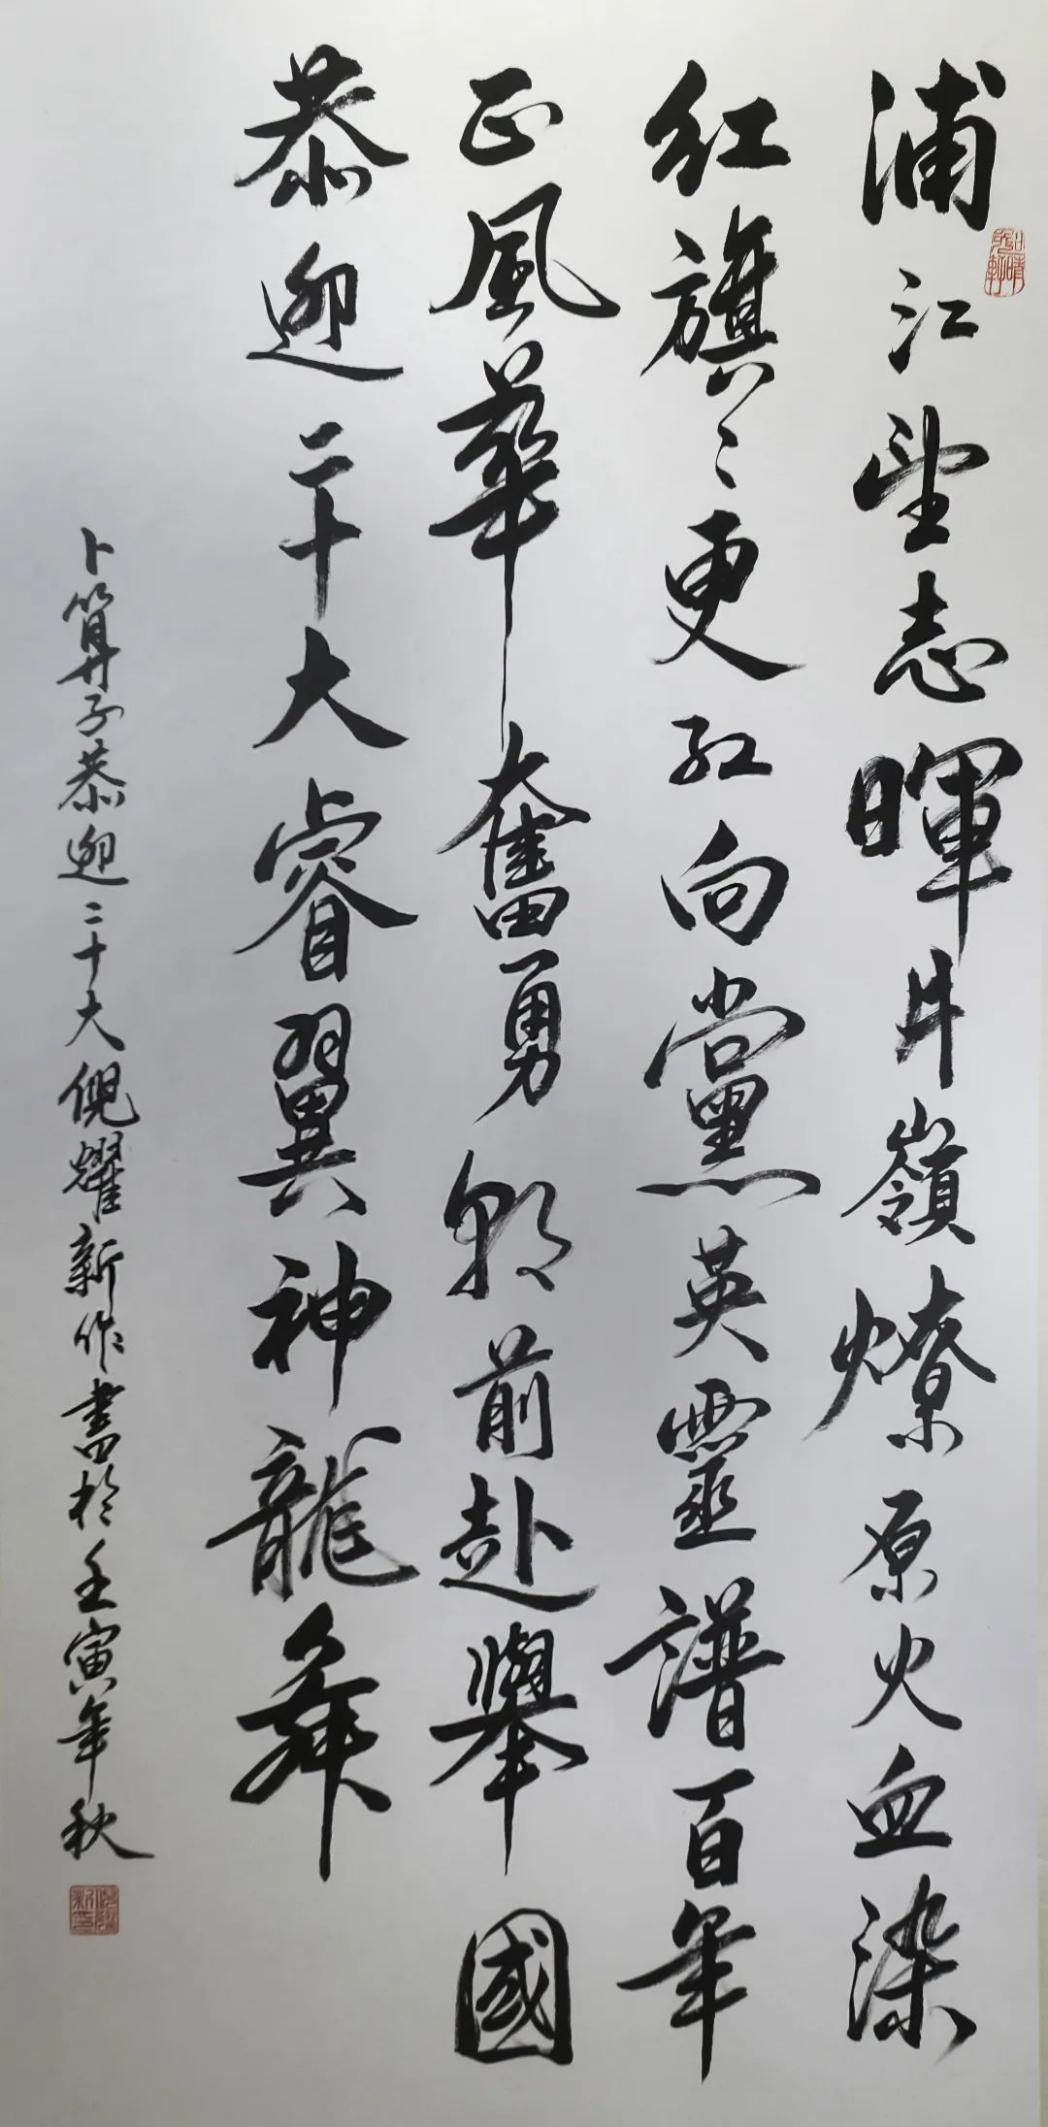 浦江望志暉井嶺燎原火血染
紅旗〻更紅向黨英靈譜百年
正風華奮勇朝前赴舉國
恭迎二十大睿翼神龍舞
卜算子恭迎二十大倪耀新作書於壬寅年秋